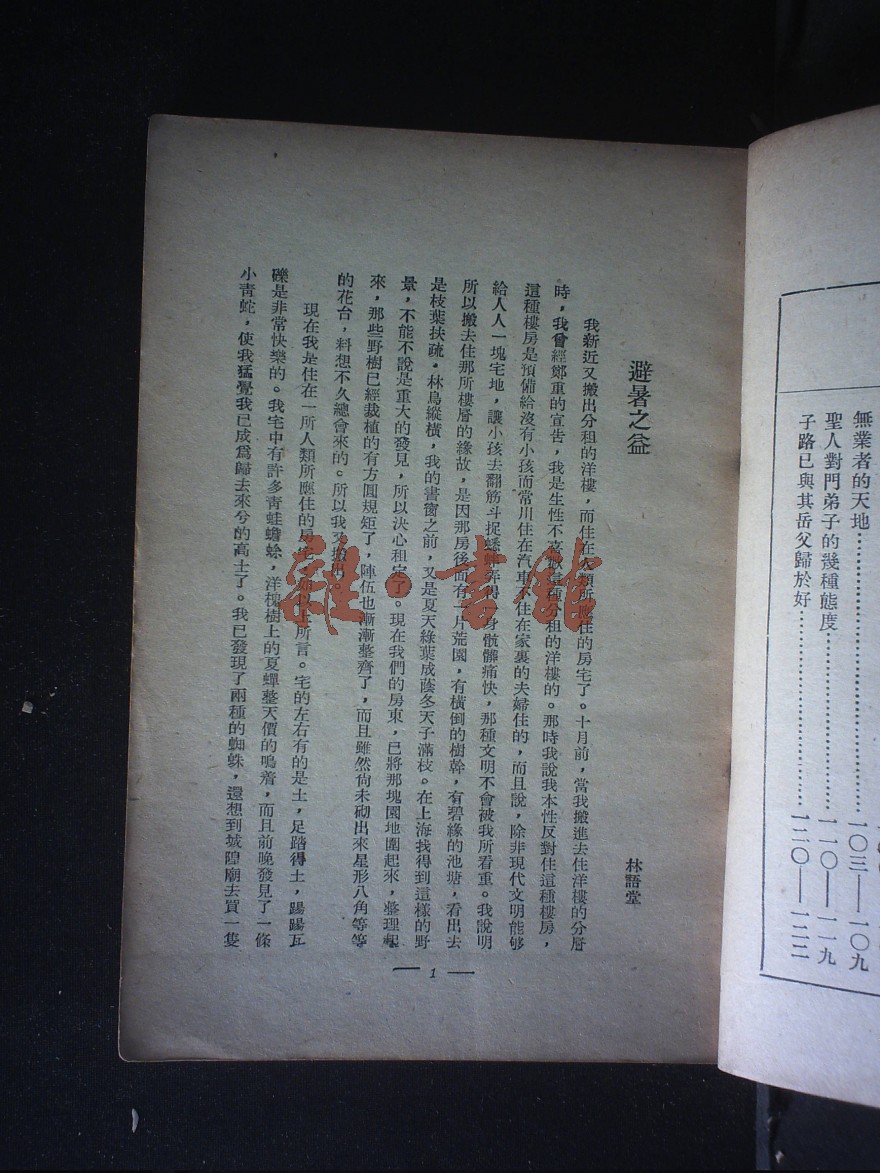 無業者的天地……一〇三—一〇九
聖人對門弟子的幾種態度……一一〇—一一九
子路已與其岳父歸於好……一二〇—一二二
避暑之益
林語堂
我新近又搬出分租的洋樓，而住在人類所應住的房宅了。十月前，當我搬進去住洋樓的分層
時，我曾經鄭重的宣告，我是生性不喜歡這種分租的洋樓的。那時我說我本性反對住這種樓房，
這種樓房是預備給沒有小孩而常川住在汽車不住在家裏的夫婦住的，而且說，除非現代文明能够
給人人一塊宅地，讓小孩去翻筋斗捉蟋蟀弄得一身骯髒痛快，那種文明不會被我所看重。我說明
所以搬去住那所樓層的緣故，是因那房後面有一片荒園，有橫倒的樹幹，有碧綠的池塘，看出去
是枝葉扶疏，林鳥縱橫，我的書窗之前，又是夏天綠葉成蔭冬天子滿枝。在上海找得到這樣的野
景，不能不說是重大的發見，所以決心租定了。現在我們的房東，已將那塊園地圍起來，整理起
來，那些野樹已經栽植的有方圓規矩了，陣伍也漸漸整齊了，而且雖然尚未砌出來星形八角等等
的花台，料想不久總會來的。所以我又搬出。
現在我是住在一所人類所應住的房宅，如以上所言。宅的左右有的是土，足踏得土，踢踢瓦
礫是非常快樂的。我宅中有許多青蛙蟾蜍，洋槐樹上的夏蟬整天價的鳴着，而且前晚發見了一條
小青蛇，使我猛覺我已成爲歸去來兮的高士了。我已發現了兩種的蜘蛛，還想到城隍廟去買一隻
— 1 —
雜·書館